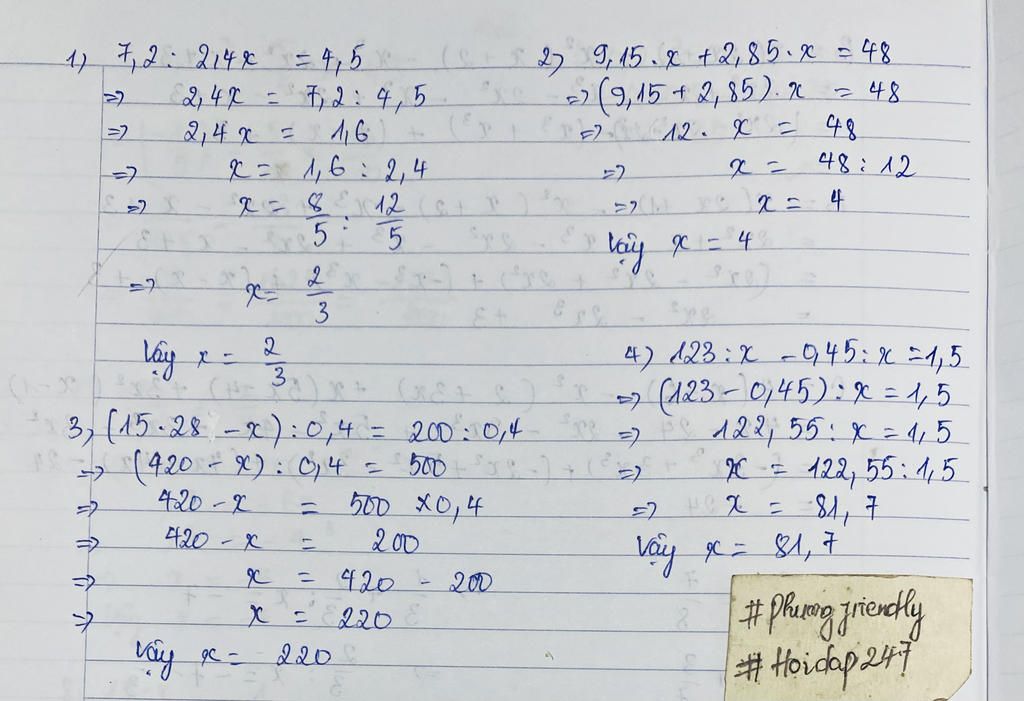 1) 7,2 : 2,4x = 4,5
=> 2,4x = 7,2 : 4,5
=> 2,4x = 1,6
=> x = 1,6 : 2,4
=> x = 8/5 : 12/5
=> x = 2/3
Vậy x = 2/3
2) 9,15 . x + 2,85 . x = 48
=> (9,15 + 2,85) . x = 48
=> 12 . x = 48
=> x = 48 : 12
=> x = 4
Vậy x = 4
3) (15 . 28 - x) : 0,4 = 200 : 0,4
=> (420 - x) : 0,4 = 500
=> 420 - x = 500 x 0,4
=> 420 - x = 200
=> x = 420 - 200
=> x = 220
Vậy x = 220
4) 123 : x - 0,45 : x = 1,5
=> (123 - 0,45) : x = 1,5
=> 122,55 : x = 1,5
=> x = 122,55 : 1,5
=> x = 81,7
Vậy x = 81,7
# Phuongfriendly
# Hoidap247